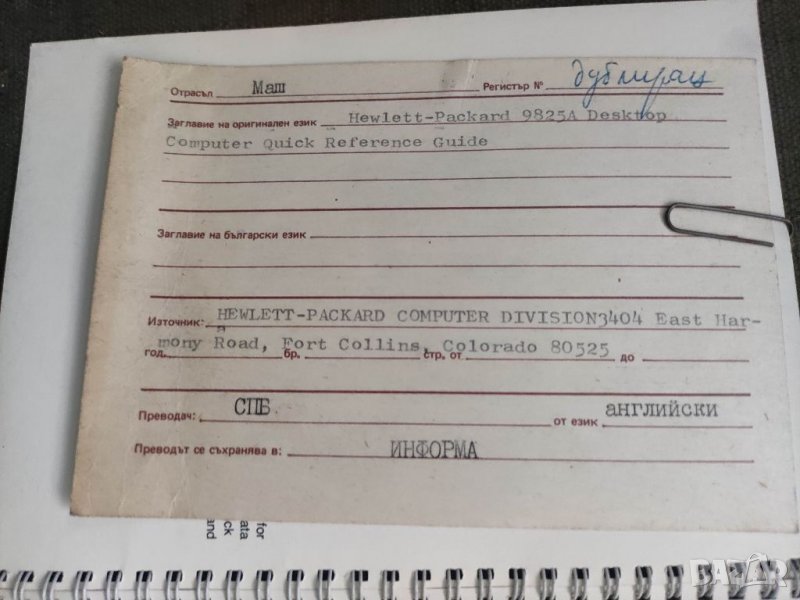 Отрасъл Маш Регистър № дублиращ
Заглавие на оригинален език Hewlett-Packard 9825A Desktop
Computer Quick Reference Guide
Заглавие на български език
Източник: HEWLETT-PACKARD COMPUTER DIVISION3404 East Har-
mony Road, Fort Collins, Colorado 80525
год. бр. стр. от до
Преводач: СПБ от език АНГЛИЙСКИ
Преводът се съхранява в: ИНФОРМА
for
ata
ck
and
BAZAR